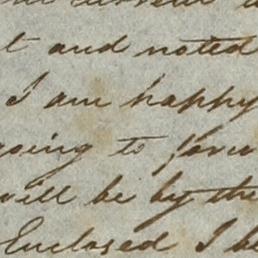 t and noted
I am happy
going to
will be by the
Enclosed I